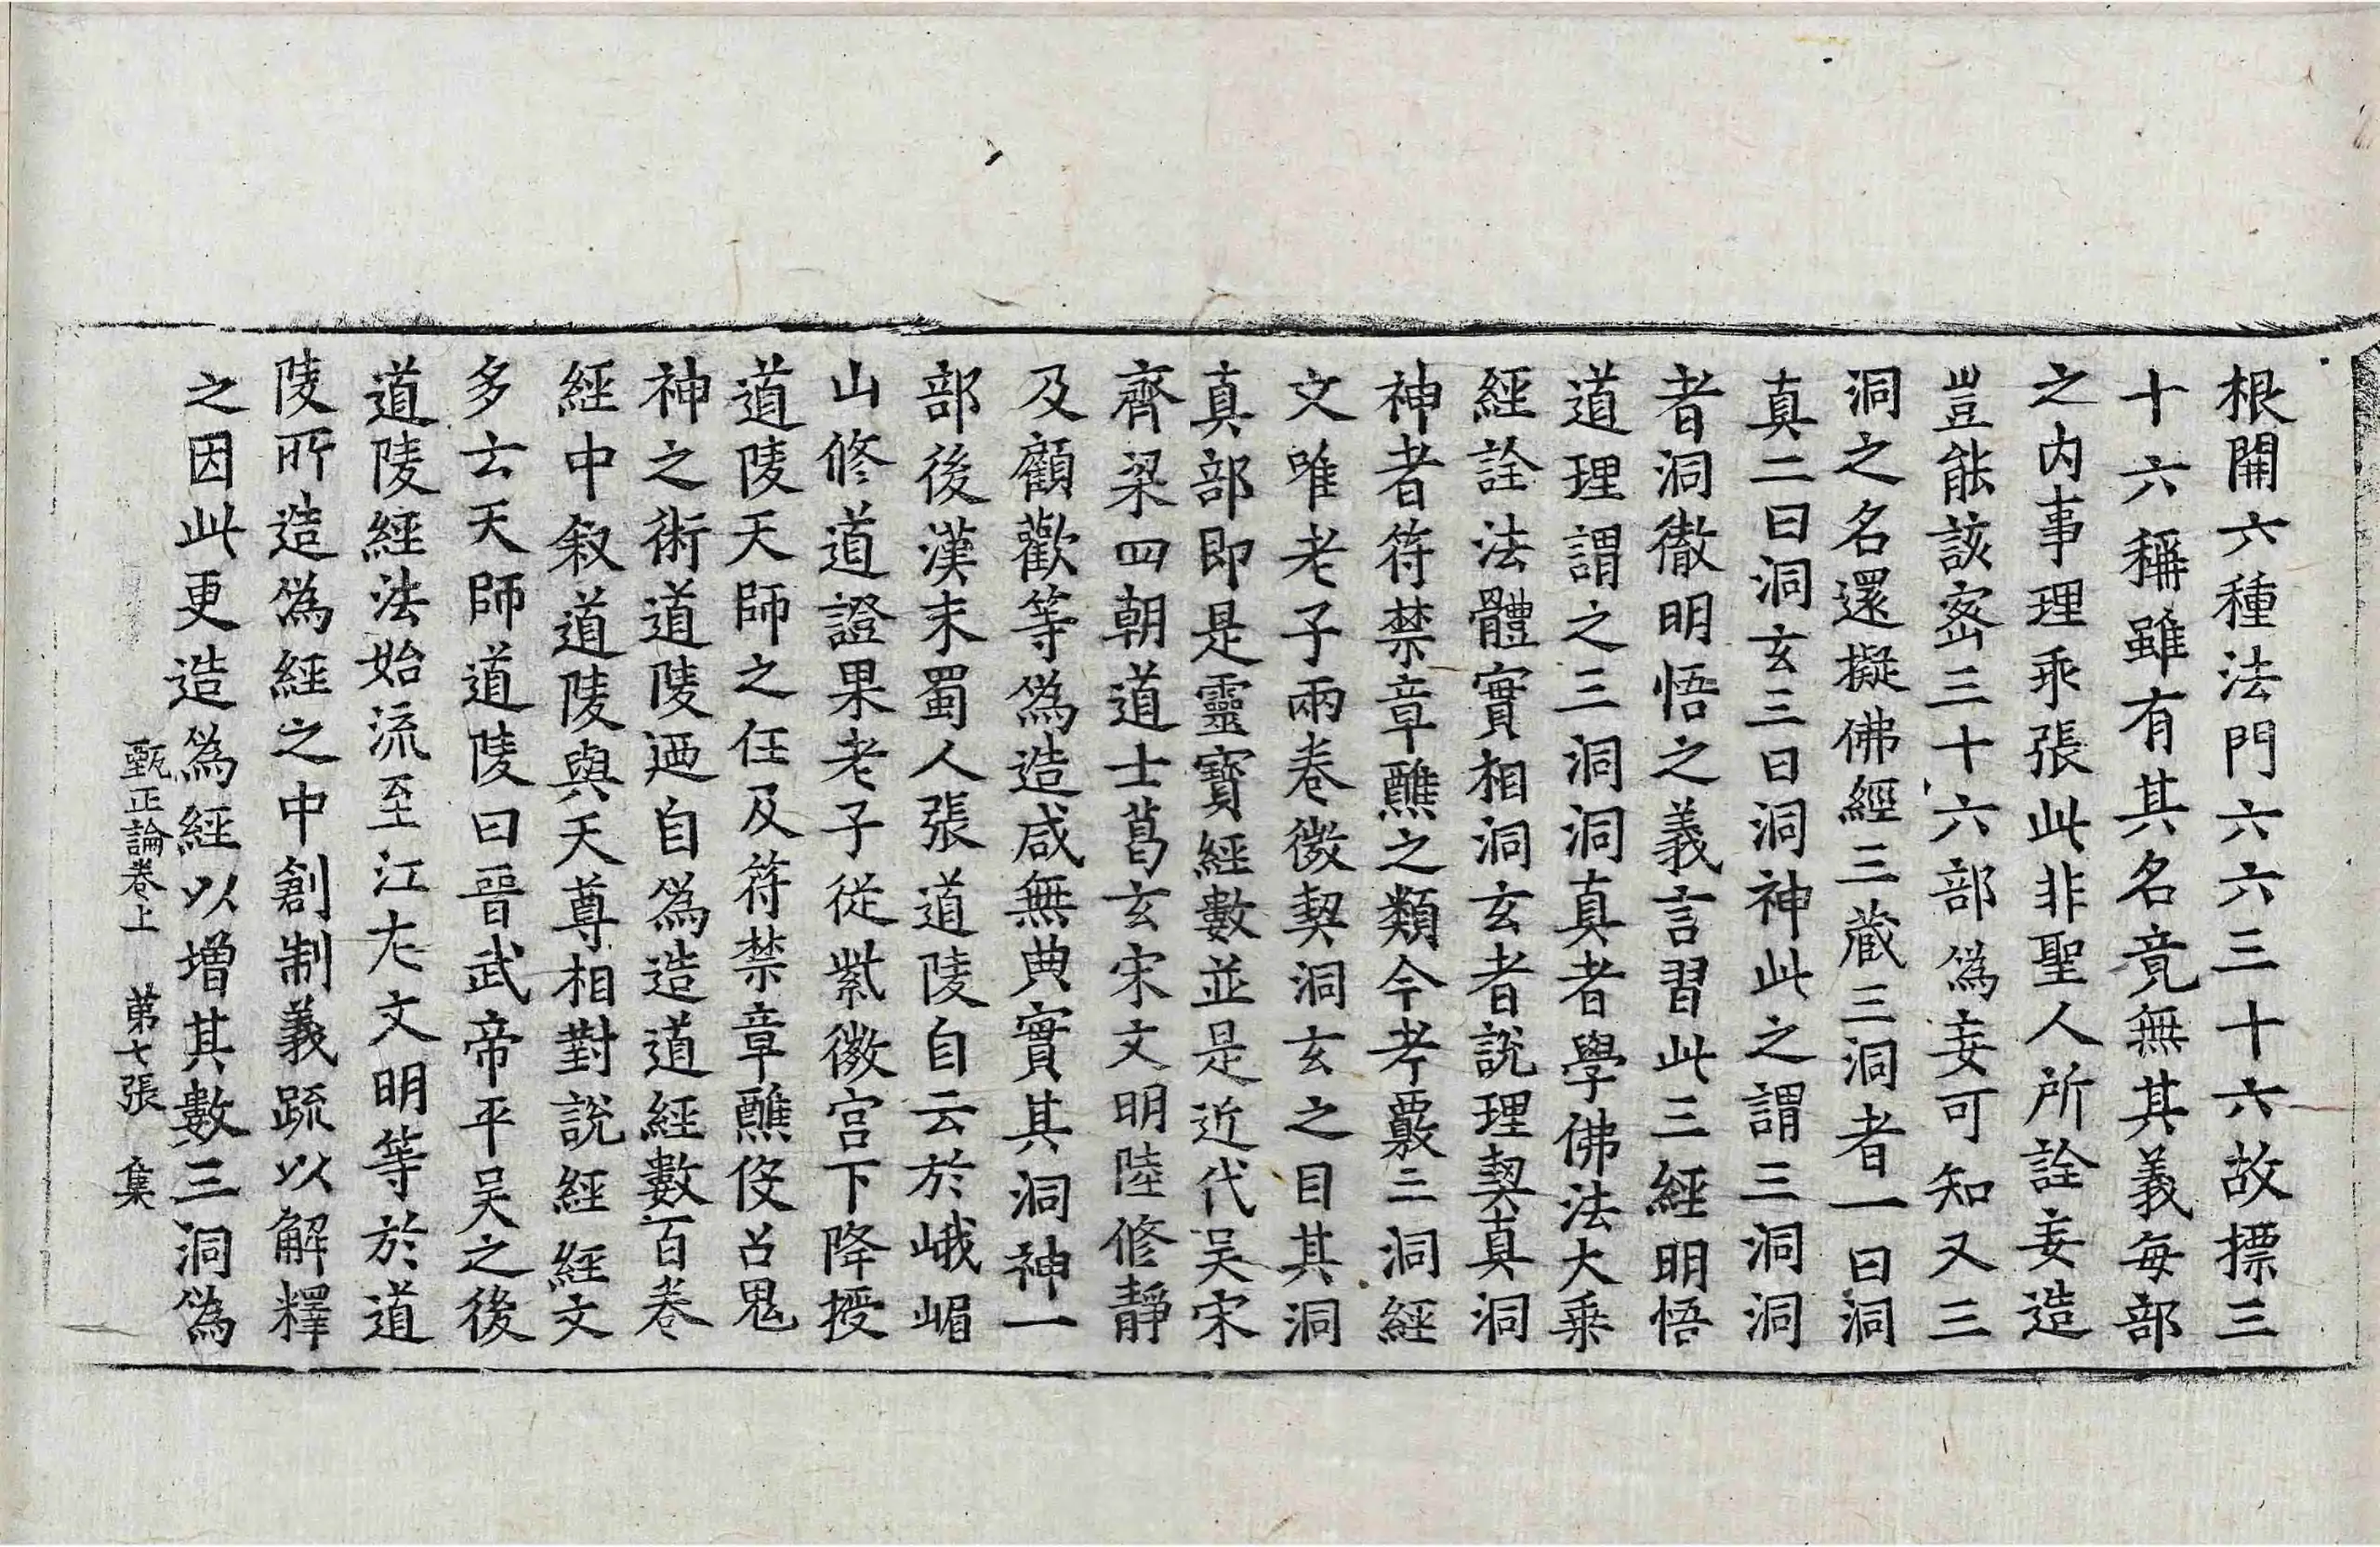 根開六種法門六六三十六故摽三
十六稱雖有其名竟無其義每部
之内事理乖張此非聖人所詮妄造
豈能該宻三十六部爲妄可知又三
洞之名還擬佛經三藏三洞者一曰洞
真二曰洞玄三曰洞神此之謂三洞洞
者洞徹明悟之義言習此三經明悟
道理謂之三洞洞真者學佛法大乗
經詮法體實相洞玄者說理契真洞
神者符禁章醮之類今考覈三洞經
文唯老子兩卷微契洞玄之目其洞
真部即是靈寶經數並是近代吴宋
齊梁四朝道士葛玄宋文明陸修靜
及顧歡等爲造咸無典實其洞神一
部後漢末蜀人張道陵自云於峨嵋
山修道證果老子從紫微宫下降授
道陵天師之任及符禁章醮伇召鬼
神之術道陵迺自爲造道經數百卷
經中叙道陵與天尊相對說經經文
多云天師道陵曰晉武帝平吴之後
道陵經法始流至江左文明等於道
陵所造爲經之中創制義疏以解釋
之因此更造爲經以增其數三洞爲
甄正論卷上 第七張 集